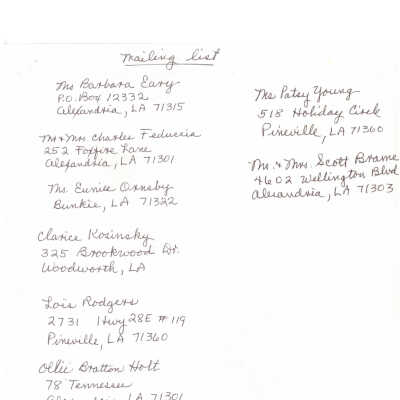 Mailing list
Ms Barbara Eary
P.O. Box 12332
Alexandria, LA 71315
Mr & Mrs. Charles Feduccia
252 Foxfire Lane
Alexandria, LA 71301
Ms. Eunice Ornsby
Bunkie, LA 71322
Clarice Kosinsky
325 Brookwood Dr.
Woodworth, LA
Lois Rodgers
2731 Hwy 28E #119
Pineville, LA 71360
Ollie Bratton Holt
78 Tennessee
Alexandria, LA 71301
Ms Patsy Young
518 Holiday Circle
Pineville, LA 71360
Mr. & Mrs. Scott Brame
4602 Wellington Blvd
Alexandria, LA 71303